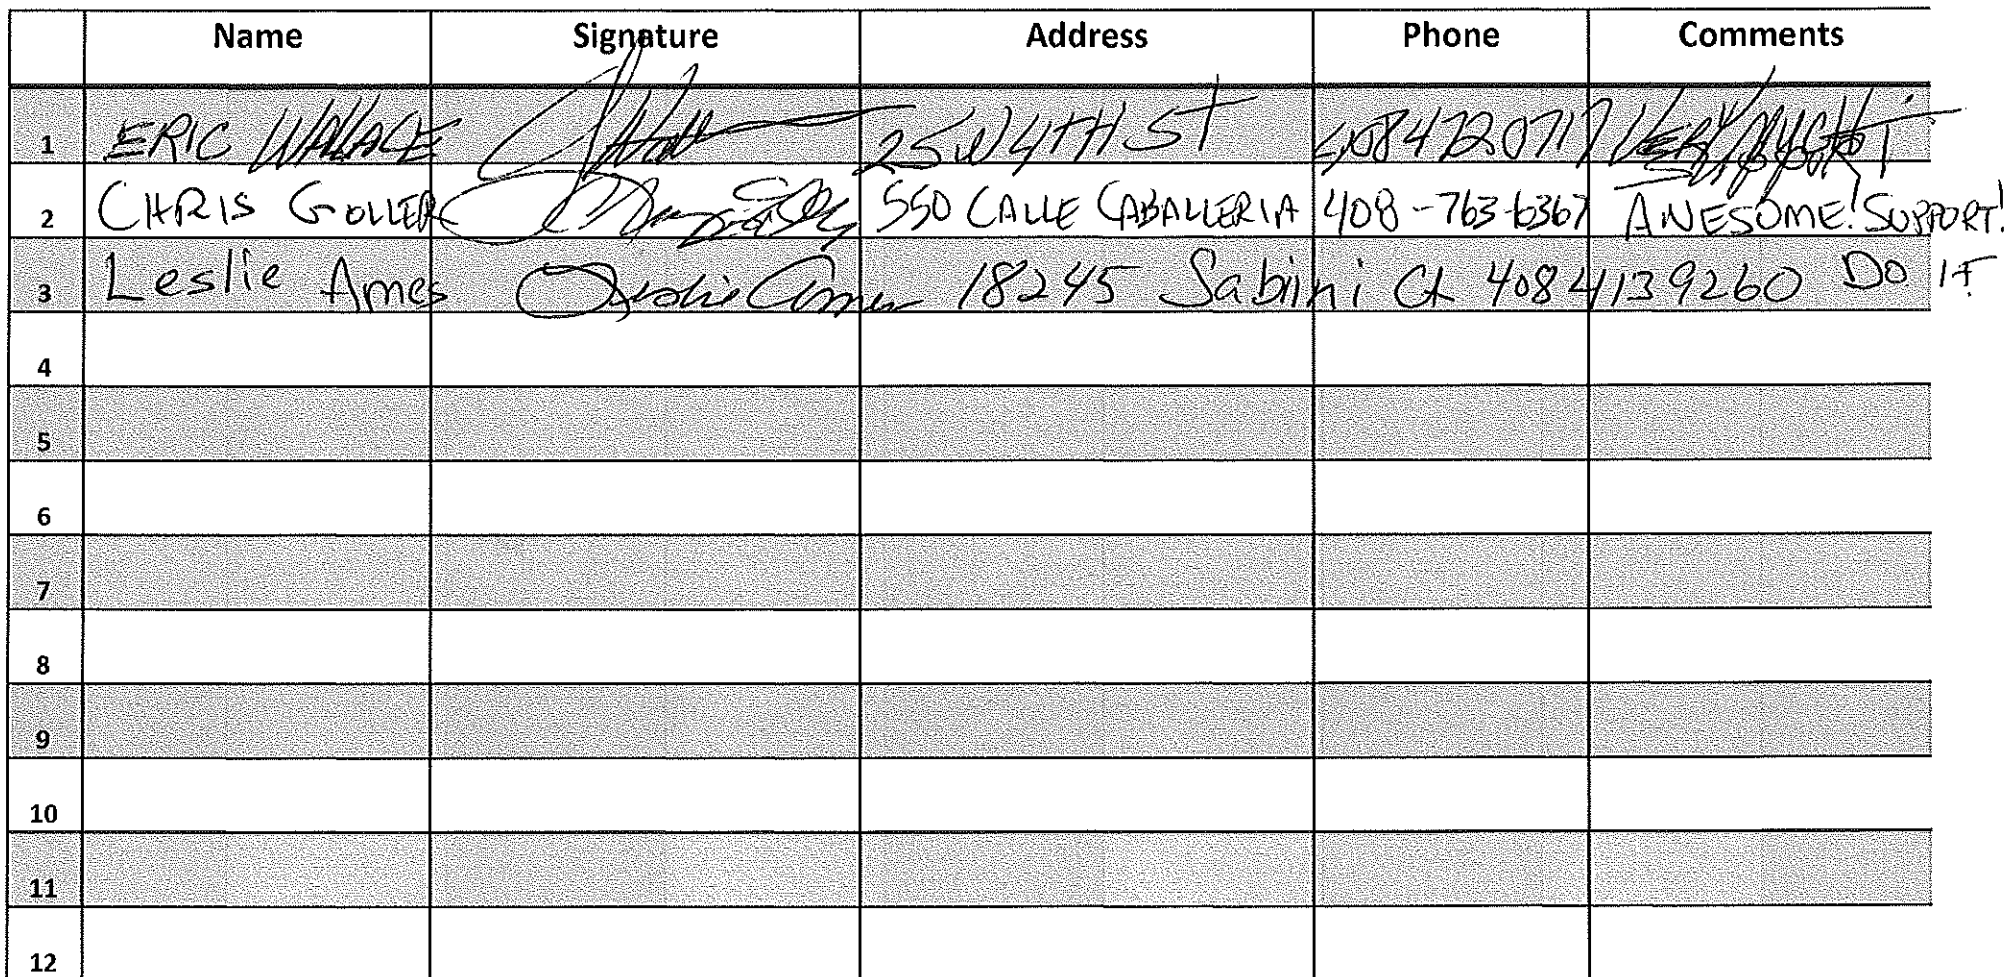 Name Signature Address Phone Comments
1 ERIC WALLACE 25 W 4TH ST 4084720717 VERY MUCH SUPPORT!
2 CHRIS GOLLER 550 CALLE CABALLERIA 408-763-6367 AWESOME! SUPPORT!
3 Leslie Ames Leslie Ames 18245 Sabini Ct 4084139260 DO IT
4
5
6
7
8
9
10
11
12